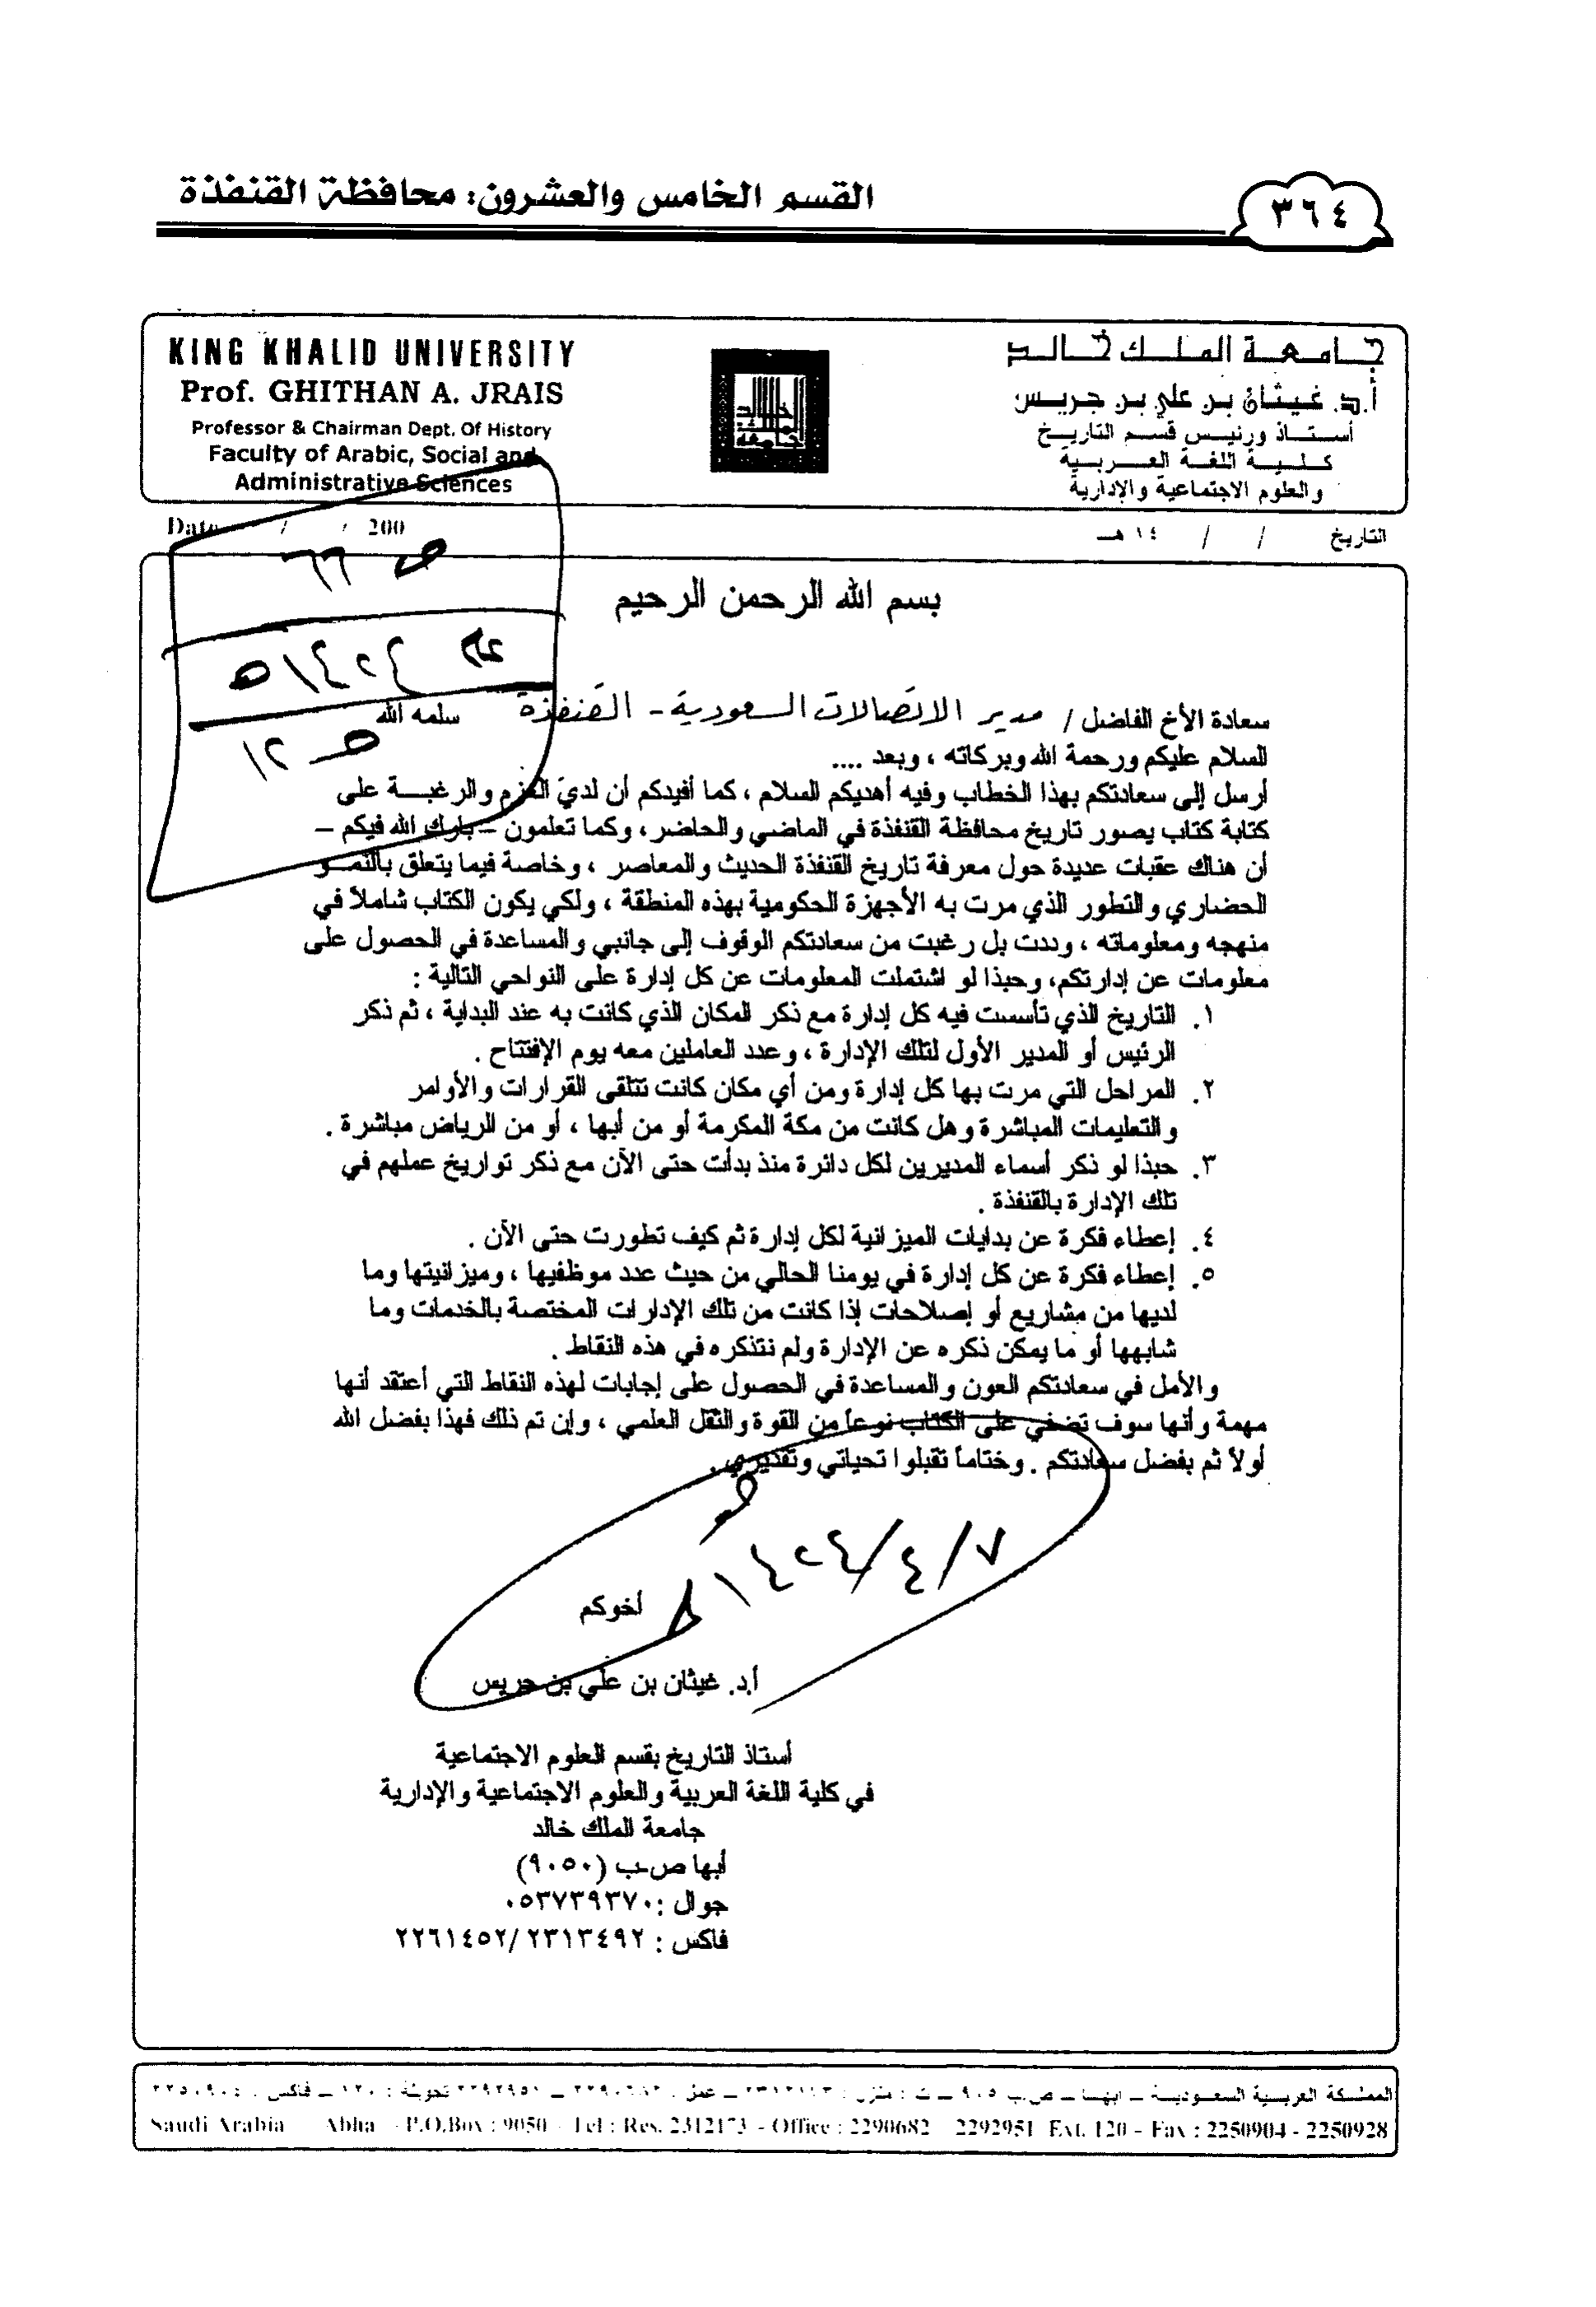 القسم الخامس والعشرون: محافظة القنفذة
٣٦٤
KING KHALID UNIVERSITY
Prof. GHITHAN A. JRAIS
Professor & Chairman Dept. Of History
Faculty of Arabic, Social and
Administrative Sciences
جامعة الملك خالد
أ.د. غيثان بن علي بن جريس
أستاذ ورئيس قسم التاريخ
كلية اللغة العربية
والعلوم الاجتماعية والإدارية
Date / / 200
التاريخ / / ١٤ هـ
ص ٦٦
عام ١٤٢٤هـ
ص ١٢
بسم الله الرحمن الرحيم
سعادة الأخ الفاضل / مدير الاتصالات السعودية - القنفذة سلمه الله
السلام عليكم ورحمة الله وبركاته ، وبعد ....
أرسل إلى سعادتكم بهذا الخطاب وفيه أهديكم السلام ، كما أفيدكم أن لدي العزم والرغبة على
كتابة كتاب يصور تاريخ محافظة القنفذة في الماضي والحاضر، وكما تعلمون – بارك الله فيكم –
أن هناك عقبات عديدة حول معرفة تاريخ القنفذة الحديث والمعاصر ، وخاصة فيما يتعلق بالنمو
الحضاري والتطور الذي مرت به الأجهزة الحكومية بهذه المنطقة ، ولكي يكون الكتاب شاملاً في
منهجه ومعلوماته ، وددت بل رغبت من سعادتكم الوقوف إلى جانبي والمساعدة في الحصول على
معلومات عن إدارتكم، وحبذا لو اشتملت المعلومات عن كل إدارة على النواحي التالية :
١. التاريخ الذي تأسست فيه كل إدارة مع ذكر المكان الذي كانت به عند البداية ، ثم ذكر
الرئيس أو المدير الأول لتلك الإدارة ، وعدد العاملين معه يوم الإفتتاح .
٢. المراحل التي مرت بها كل إدارة ومن أي مكان كانت تتلقى القرارات والأوامر
والتعليمات المباشرة وهل كانت من مكة المكرمة أو من أبها ، أو من الرياض مباشرة .
٣. حبذا لو ذكر أسماء المديرين لكل دائرة منذ بدأت حتى الآن مع ذكر تواريخ عملهم في
تلك الإدارة بالقنفذة .
٤. إعطاء فكرة عن بدايات الميزانية لكل إدارة ثم كيف تطورت حتى الآن .
٥. إعطاء فكرة عن كل إدارة في يومنا الحالي من حيث عدد موظفيها ، وميزانيتها وما
لديها من مشاريع أو إصلاحات إذا كانت من تلك الإدارات المختصة بالخدمات وما
شابهها أو ما يمكن ذكره عن الإدارة ولم نتذكره في هذه النقاط .
والأمل في سعادتكم العون والمساعدة في الحصول على إجابات لهذه النقاط التي أعتقد أنها
مهمة وأنها سوف تضفي على الكتاب نوعاً من القوة والثقل العلمي ، وإن تم ذلك فهذا بفضل الله
أولاً ثم بفضل سعادتكم . وختاماً تقبلوا تحياتي وتقديري .
١٤٢٤/٤/٧
أخوكم
أ.د. غيثان بن علي بن جريس
أستاذ التاريخ بقسم العلوم الاجتماعية
في كلية اللغة العربية والعلوم الاجتماعية والإدارية
جامعة الملك خالد
أبها ص.ب (٩٠٥٠)
جوال : ٠٥٣٧٣٩٣٧٠
فاكس : ٢٢٦١٤٥٢/٢٣١٣٤٩٢
المملكة العربية السعودية – ابها – ص.ب ٩٠٥ – ت : منزل : – عمل : – ٢٢٩٢٩٥١ تحويلة : ١٢٠ – فاكس :
Saudi Arabia Abha - P.O.Box : 9050 - Tel : Res. 2312173 - Office : 2290682 2292951 Ext. 120 - Fax : 2250904 - 2250928